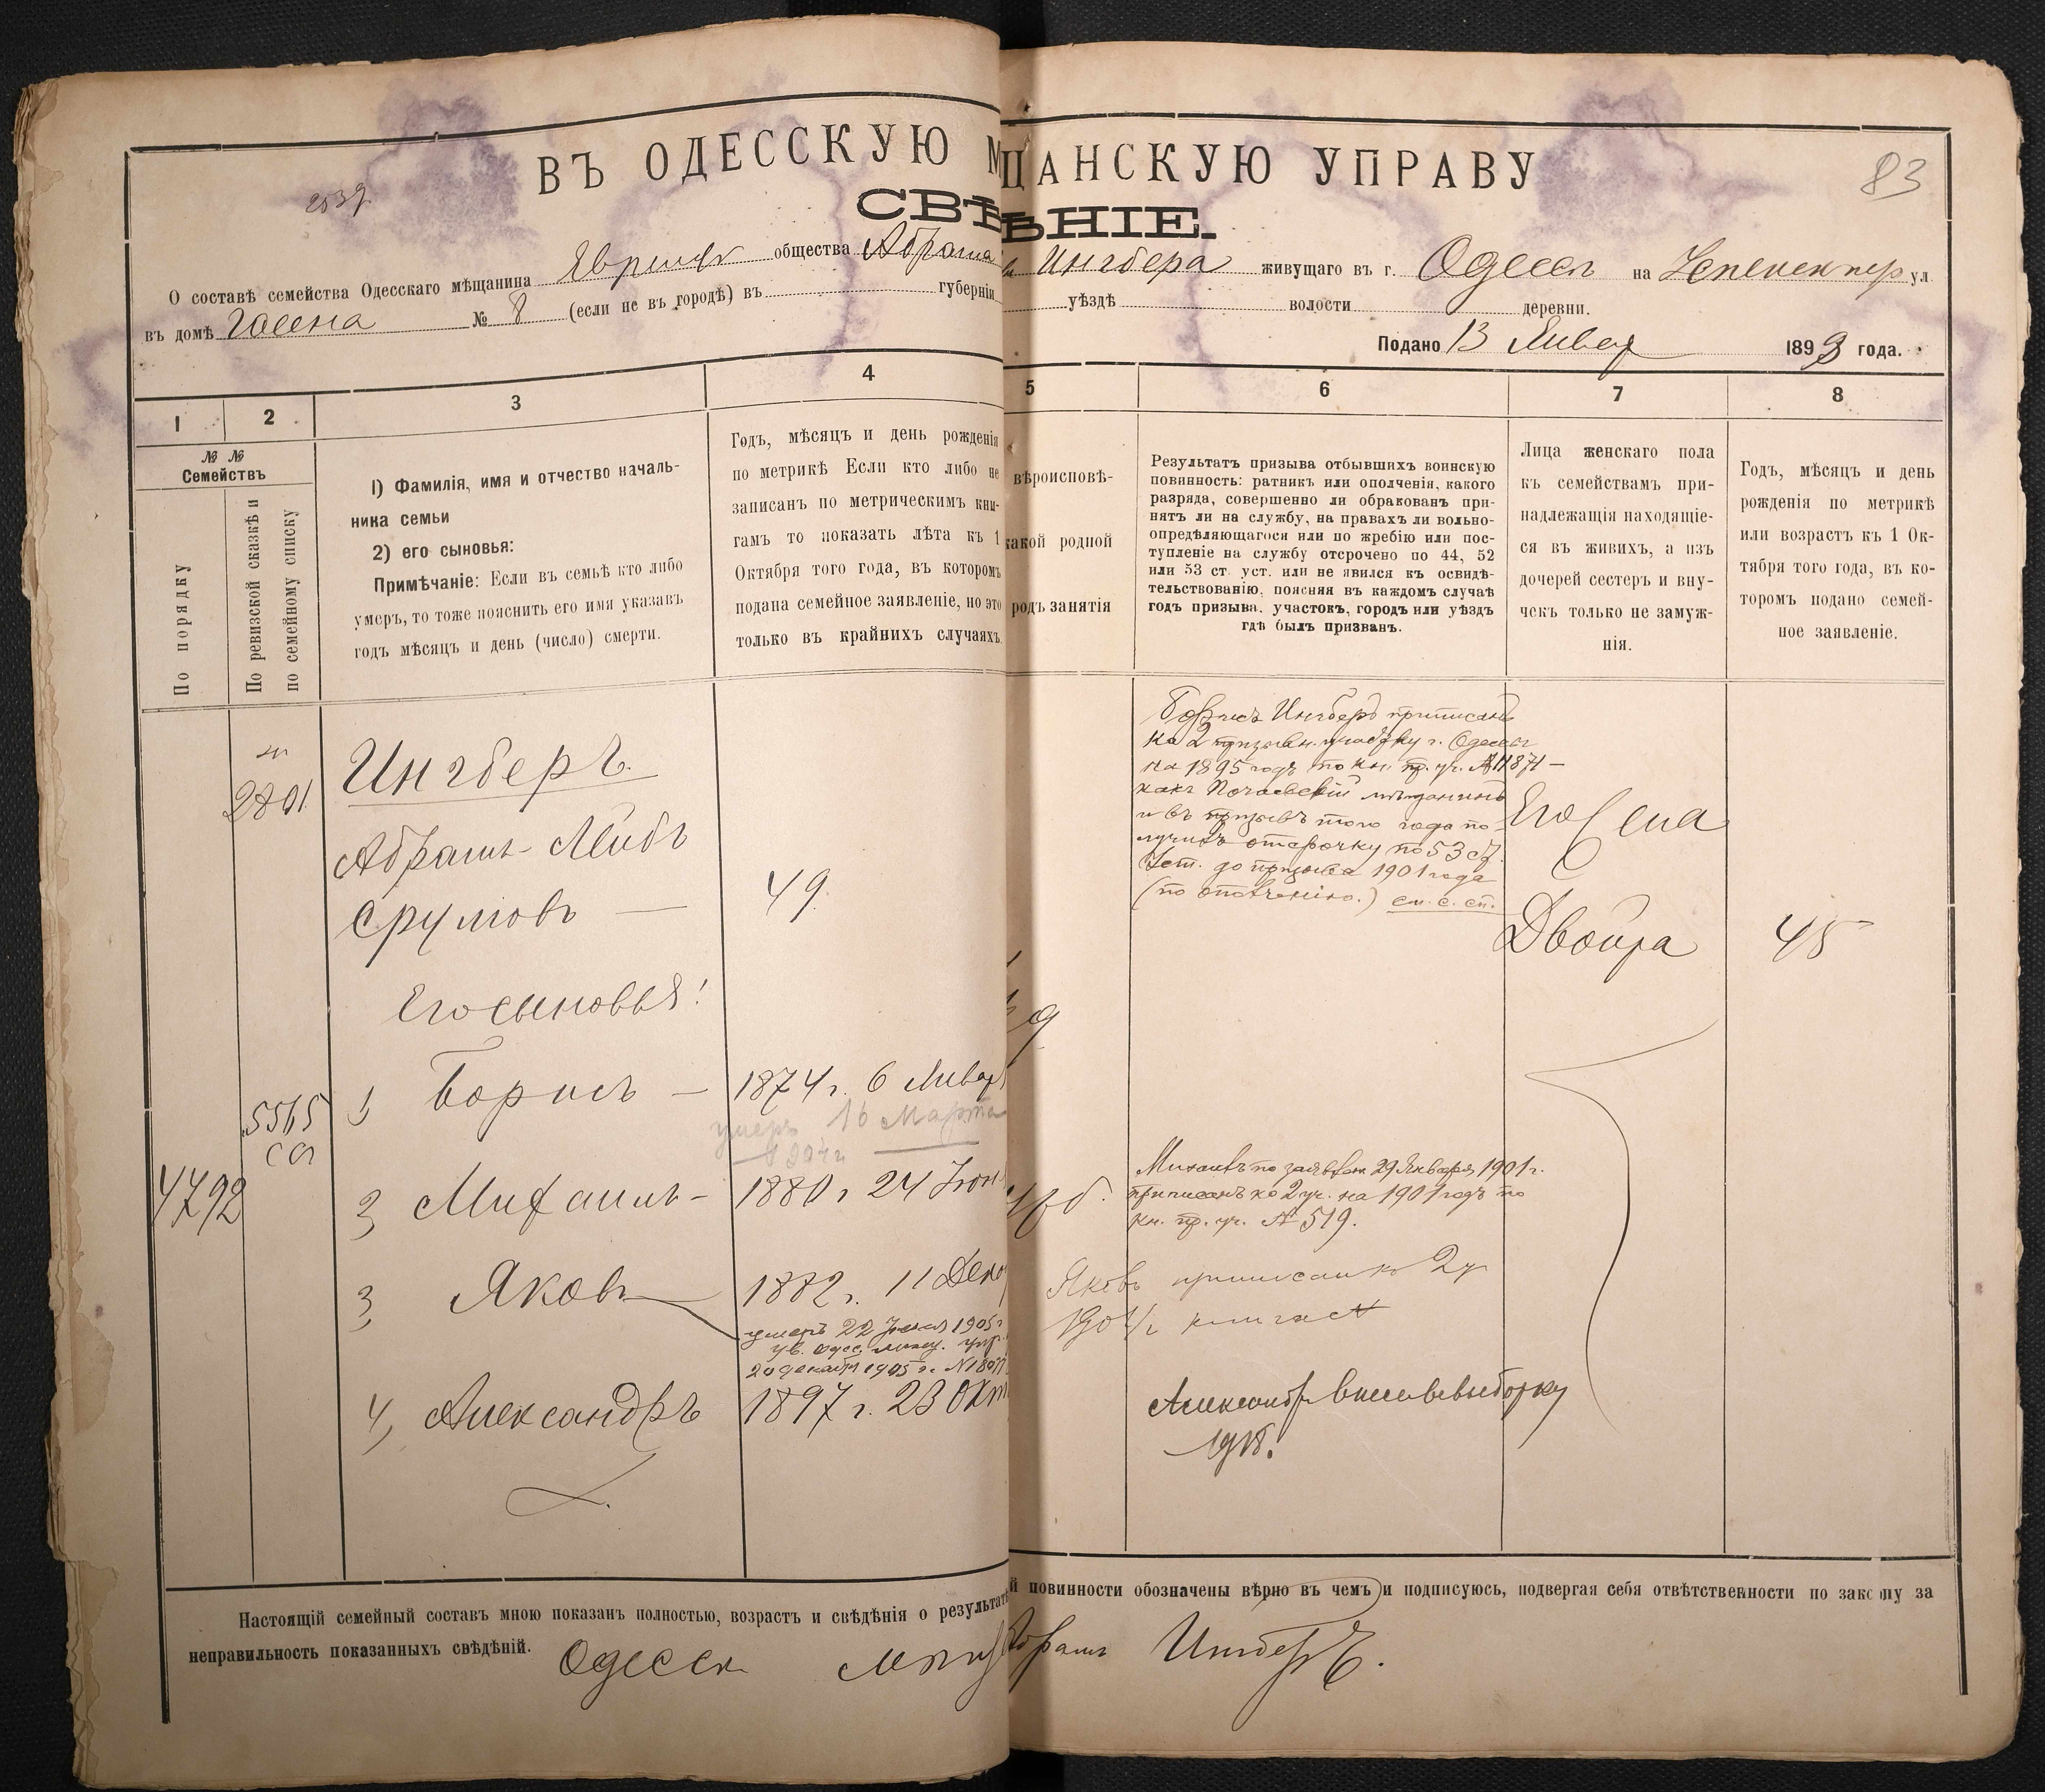 ВЪ ОДЕССКУЮ М ЩАНСКУЮ УПРАВУ
83
2539
СВѢ ѢНІЕ.
О составѣ семейства Одесскаго мѣщанина общества Абрама Ингбера живущаго въ г. Одессѣ на ул
въ домѣ № 8 (если не въ городѣ) въ губерніи уѣздѣ волости деревни.
Подано 13 Январ 1893 года.
1 2 3 4 5 6 7 8
№ № Семействъ
По порядку
По ревизской сказкѣ и
по семейному списку
1) Фамилія, имя и отчество началь-
ника семьи
2) его сыновья:
Примѣчаніе: Если въ семьѣ кто либо
умеръ, то тоже пояснить его имя указавъ
годъ мѣсяцъ и день (число) смерти.
Годъ, мѣсяцъ и день рожденія
по метрикѣ Если кто либо не
записанъ по метрическимъ кни-
гамъ то показать лѣта къ 1
Октября того года, въ которомъ
подана семейное заявленіе, но это
только въ крайнихъ случаяхъ.
вѣроисповѣ-
какой родной
родъ занятія
Результатъ призыва отбывшихъ воинскую
повинность: ратникъ или ополченія, какого
разряда, совершенно ли обракованъ при-
нятъ ли на службу, на правахъ ли вольно-
опредѣляющагося или по жребію или пос-
тупленіе на службу отсрочено по 44, 52
или 53 ст. уст. или не явился къ освидѣ-
тельствованію, поясняя въ каждомъ случаѣ
годъ призыва, участокъ, городъ или уѣздъ
гдѣ былъ призванъ.
Лица женскаго пола
къ семействамъ при-
надлежащія находящіе-
ся въ живихъ, а изъ
дочерей сестеръ и вну-
чекъ только не замуж-
нія.
Годъ, мѣсяцъ и день
рожденія по метрикѣ
или возрастъ къ 1 Ок-
тября того года, въ ко-
торомъ подано семей-
ное заявленіе.
2801
Ингберъ.
Абрамъ-Лейбъ
Срумовъ — 49
Борисъ Ингберъ приписанъ
ко 2 призывн. участку г. Одессы
на 1895 годъ по кн. пр. уч. № 11871 —
какъ Почаевскій мѣщанинъ
и въ призывъ того года по-
лучилъ отсрочку по 53 ст.
Уст. до призыва 1901 года
см. с. сп.
Его жена
Двойра 45
Его сыновья!
5565
1 Борисъ — 1874 г. 6 Январ
умеръ 16 Марта
4792
2, Михаилъ — 1880 г 24 Іюн
Михаилъ по заявлен 29 Января 1901 г.
приписанъ ко 2 уч. на 1901 годъ по
кн. пр. уч. № 519.
3 Яковъ 1882 г. 11 Дека
умеръ 22 1905 г
20 декабря 1905 г. №
Яковъ приписанъ 2 у
4, Александръ 1897 г. 23 Окт
Александр
Настоящій семейный составъ мною показанъ полностью, возрастъ и свѣдѣнія о результат й повинности обозначены вѣрно въ чемъ и подписуюсь, подвергая себя отвѣтственности по закону за
неправильность показанныхъ свѣдѣній. Одесск Абрамъ Ингберъ.